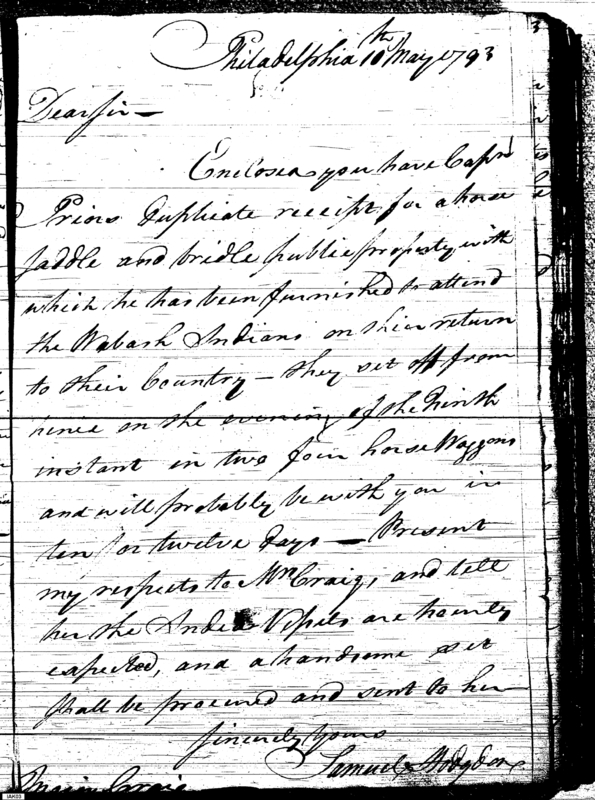 Philadelphia 10th May 1793
Dear Sir —
Enclosed you have Capn
Priors Duplicate receipt for a horse
saddle and bridle public property with
which he has been furnished to attend
the Wabash Indians on their return
to their Country — they set off from
hence on the evening of the Ninth
instant in two four horse Waggons
and will probably be with you in
ten or twelve days — Present
my respects to Mrs Craig, and tell
her the India Vessels are hourly
expected, and a handsome set
shall be procured and sent to her
Sincerely yours
Samuel Hodgdon
Major Craig
IAK03